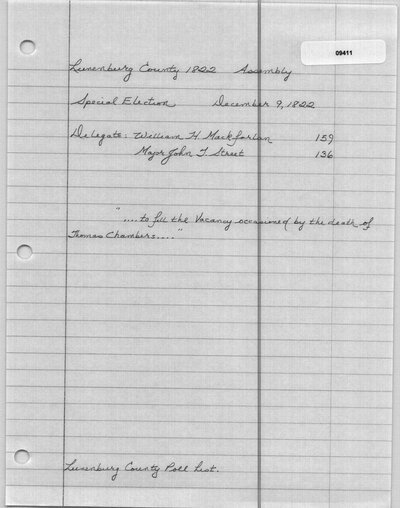 09411
Lunenburg County 1822 Assembly
Special Election December 9, 1822
Delegate: William H. Mackfarlan 159
Major John T. Street 136
"....to fill the Vacancy occasioned by the death of
Thomas Chambers...."
Lunenburg County Poll List.